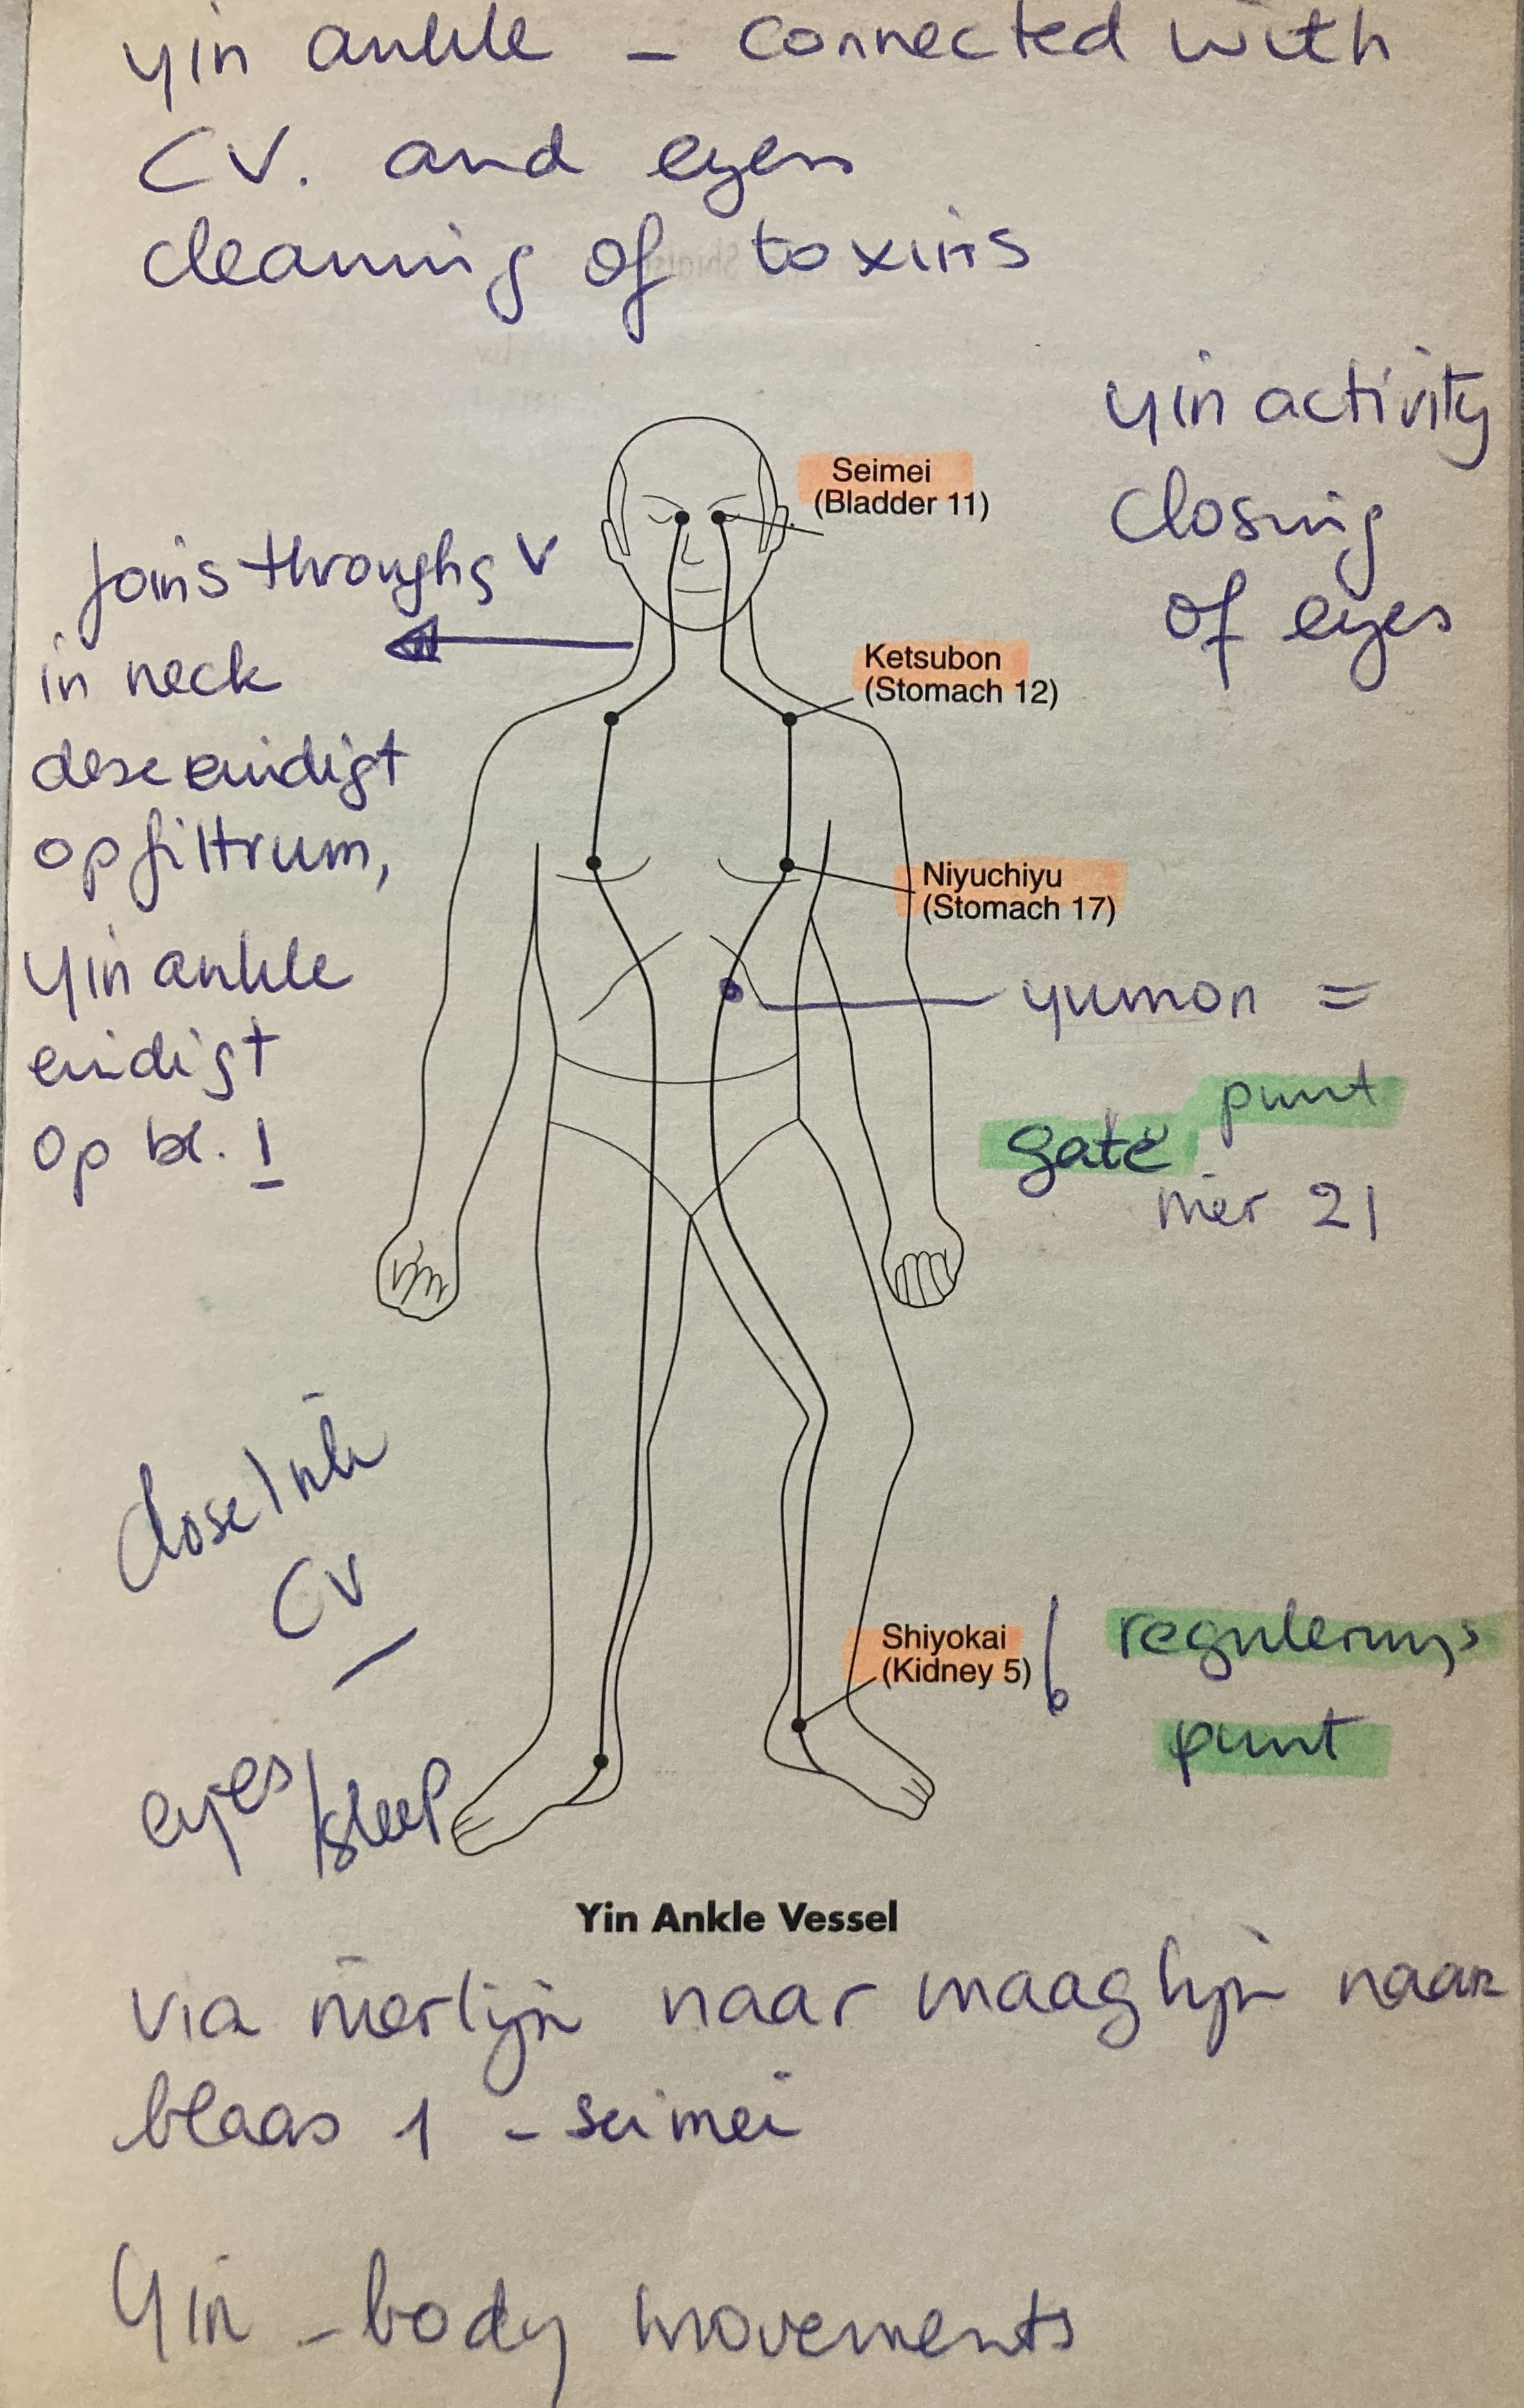 yin ankle – connected with
CV. and eyes
cleaning of toxins
yin activity
closing
of eyes
Seimei
(Bladder 11)
joins through gV
in neck
deze eindigt
op filtrum,
yin ankle
eindigt
op bl. 1
Ketsubon
(Stomach 12)
Niyuchiyu
(Stomach 17)
yumon =
gate punt
nier 21
close link
CV
eyes/sleep
Shiyokai
(Kidney 5)
6
regulerings
punt
Yin Ankle Vessel
via nierlijn naar maaglijn naar
blaas 1 – seimei
Yin – body movements